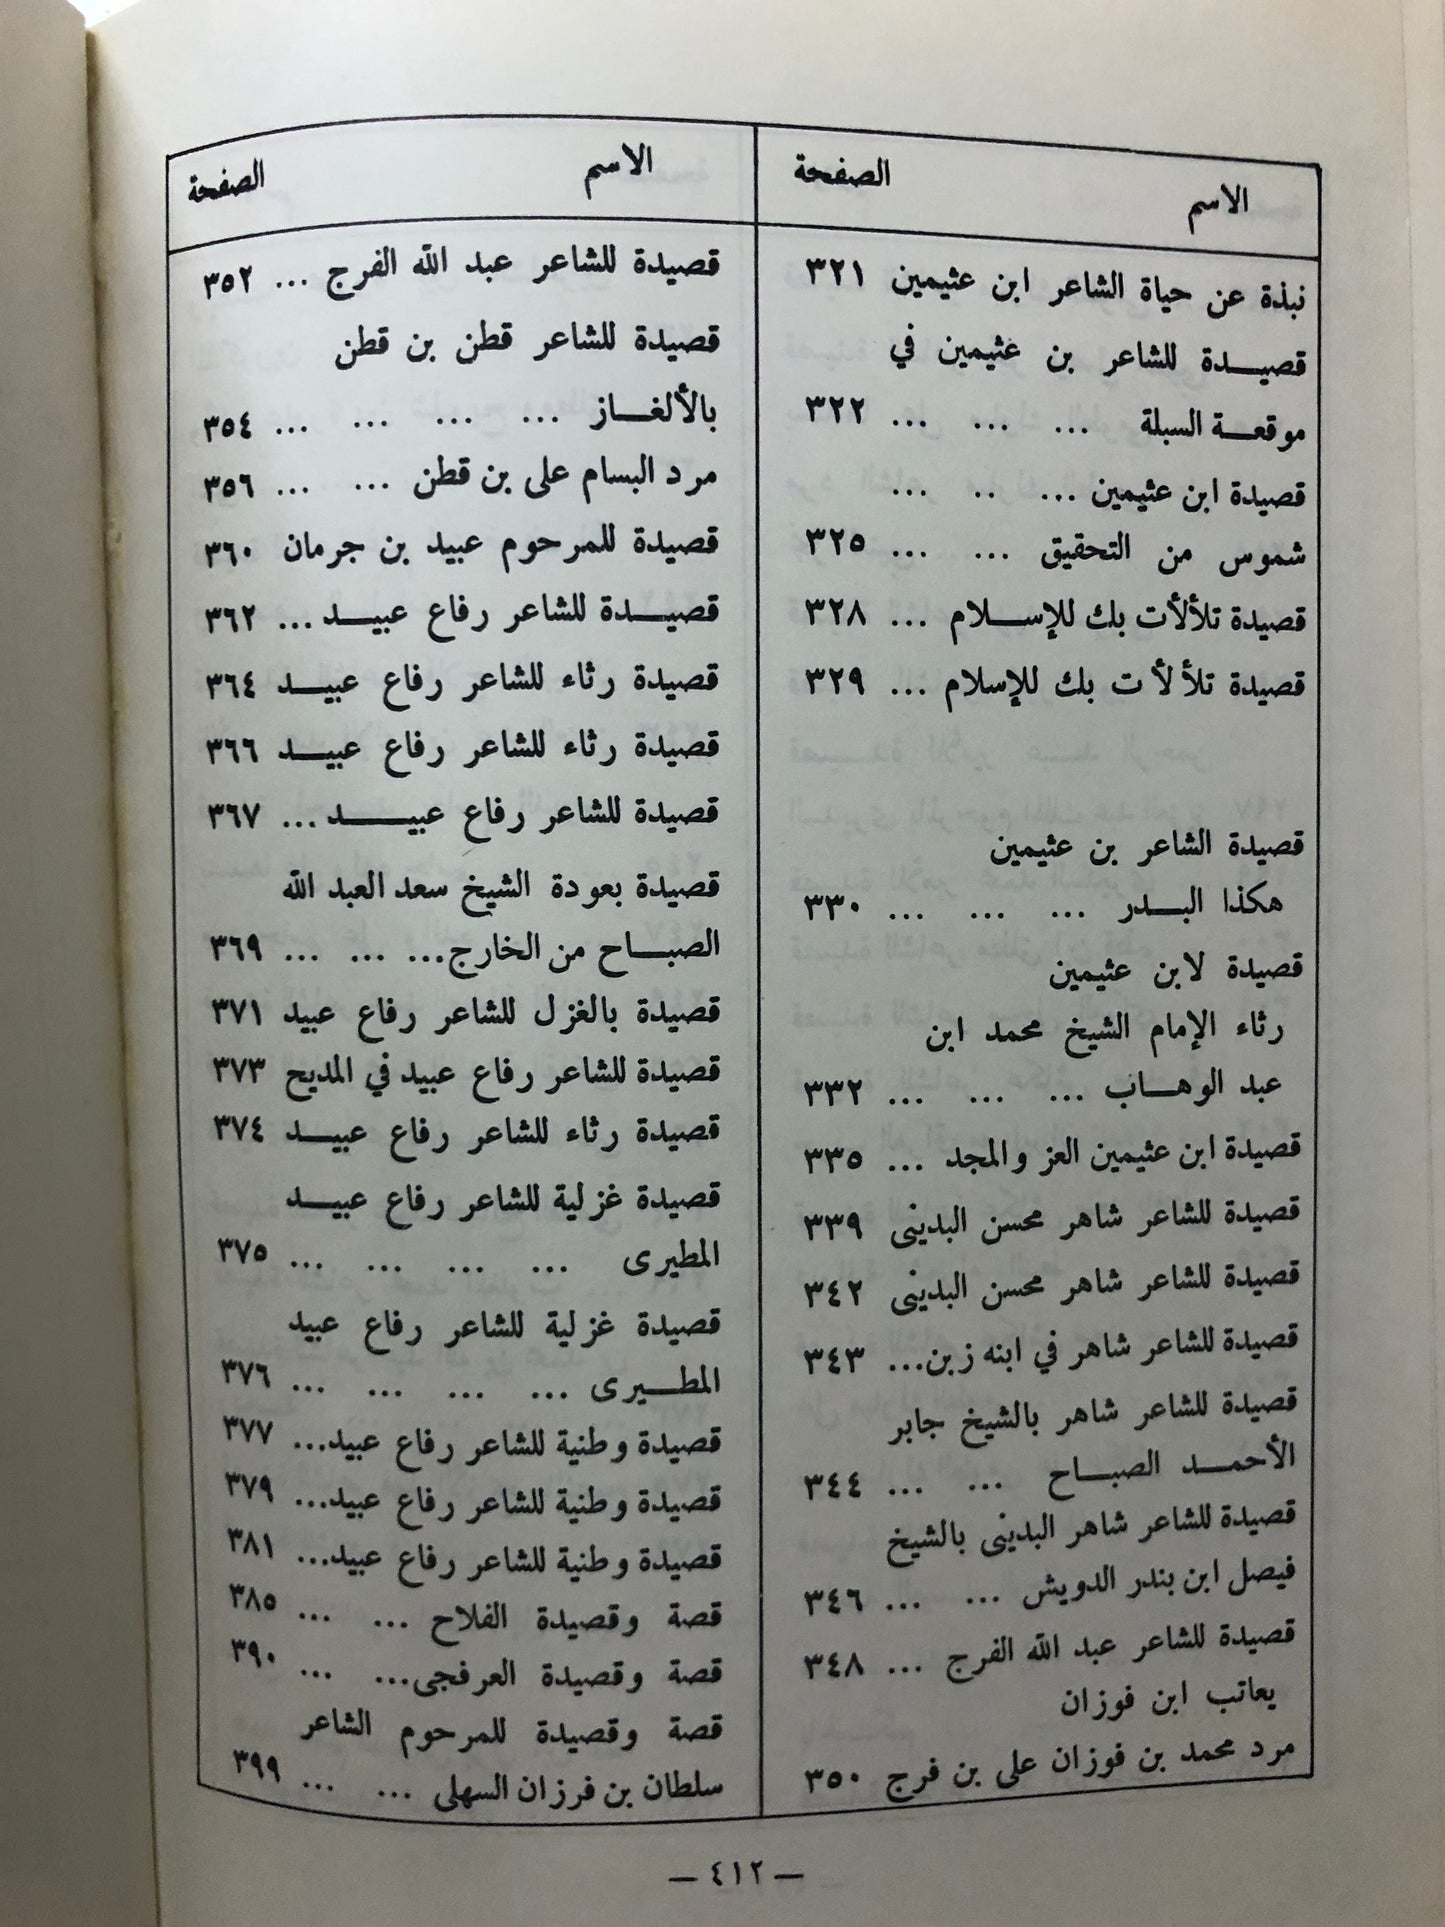 الاسم الصفحة
نبذة عن حياة الشاعر ابن عثيمين ٣٢١
قصيـــدة للشاعر بن عثيمين في
موقعـــة السبلة ... ... ... ٣٢٢
قصيدة ابن عثيمين ... .. ...
شموس من التحقيق ... ... ٣٢٥
قصيدة تلألأت بك للإســـلام ... ٣٢٨
قصيدة تلألأت بك للإسلام ... ٣٢٩
قصيدة الشاعر بن عثيمين
هكذا البـــدر ... ... ... ٣٣٠
قصيدة لابن عثيمين
رثاء الإمام الشيخ محمد ابن
عبد الوهـــاب ... ... ... ٣٣٢
قصيدة ابن عثيمين العز والمجد ... ٣٣٥
قصيدة للشاعر شاهر محسن البدينى ٣٣٩
قصيدة للشاعر شاهر محسن البدينى ٣٤٢
قصيدة للشاعر شاهر في ابنه زبن... ٣٤٣
قصيدة للشاعر شاهر بالشيخ جابر
الأحمـــد الصبـــاح ... ... ٣٤٤
قصيدة للشاعر شاهر البدينى بالشيخ
فيصل ابن بندر الدويش ... ... ٣٤٦
قصيدة للشاعر عبد الله الفرج ... ٣٤٨
يعاتب ابن فوزان
مرد محمد بن فوزان على بن فرج ٣٥٠
الاسم الصفحة
قصيدة للشاعر عبد الله الفرج ... ٣٥٢
قصيدة للشاعر قطن بن قطن
بالألغـــاز ... ... ... ... ٣٥٤
مرد البسام على بن قطن ... ... ٣٥٦
قصيدة للمرحوم عبيد بن جرمان ٣٦٠
قصيـــدة للشاعر رفاع عبيـــد ... ٣٦٢
قصيدة رثاء للشاعر رفاع عبيـــد ٣٦٤
قصيدة رثاء للشاعر رفاع عبيـــد ٣٦٦
قصيدة للشاعر رفاع عبيـــــد ... ٣٦٧
قصيدة بعودة الشيخ سعد العبد الله
الصبـــاح من الخارج... ... ... ٣٦٩
قصيدة بالغزل للشاعر رفاع عبيد ٣٧١
قصيدة للشاعر رفاع عبيد في المديح ٣٧٣
قصيدة رثاء للشاعر رفاع عبيـــد ٣٧٤
قصيدة غزلية للشاعر رفاع عبيـــد
المطيرى ... ... ... ... ٣٧٥
قصيدة غزلية للشاعر رفاع عبيد
المطـــيرى ... ... ... ... ٣٧٦
قصيدة وطنية للشاعر رفاع عبيد... ٣٧٧
قصيدة وطنية للشاعر رفاع عبيد... ٣٧٩
قصيدة وطنية للشاعر رفاع عبيد... ٣٨١
قصة وقصيدة الفلاح ... ... ٣٨٥
قصة وقصيدة العرفجى... ... ٣٩٠
قصة وقصيدة للمرحوم الشاعر
سلطان بن فرزان السهلى ... ... ٣٩٩
— ٤١٢ —